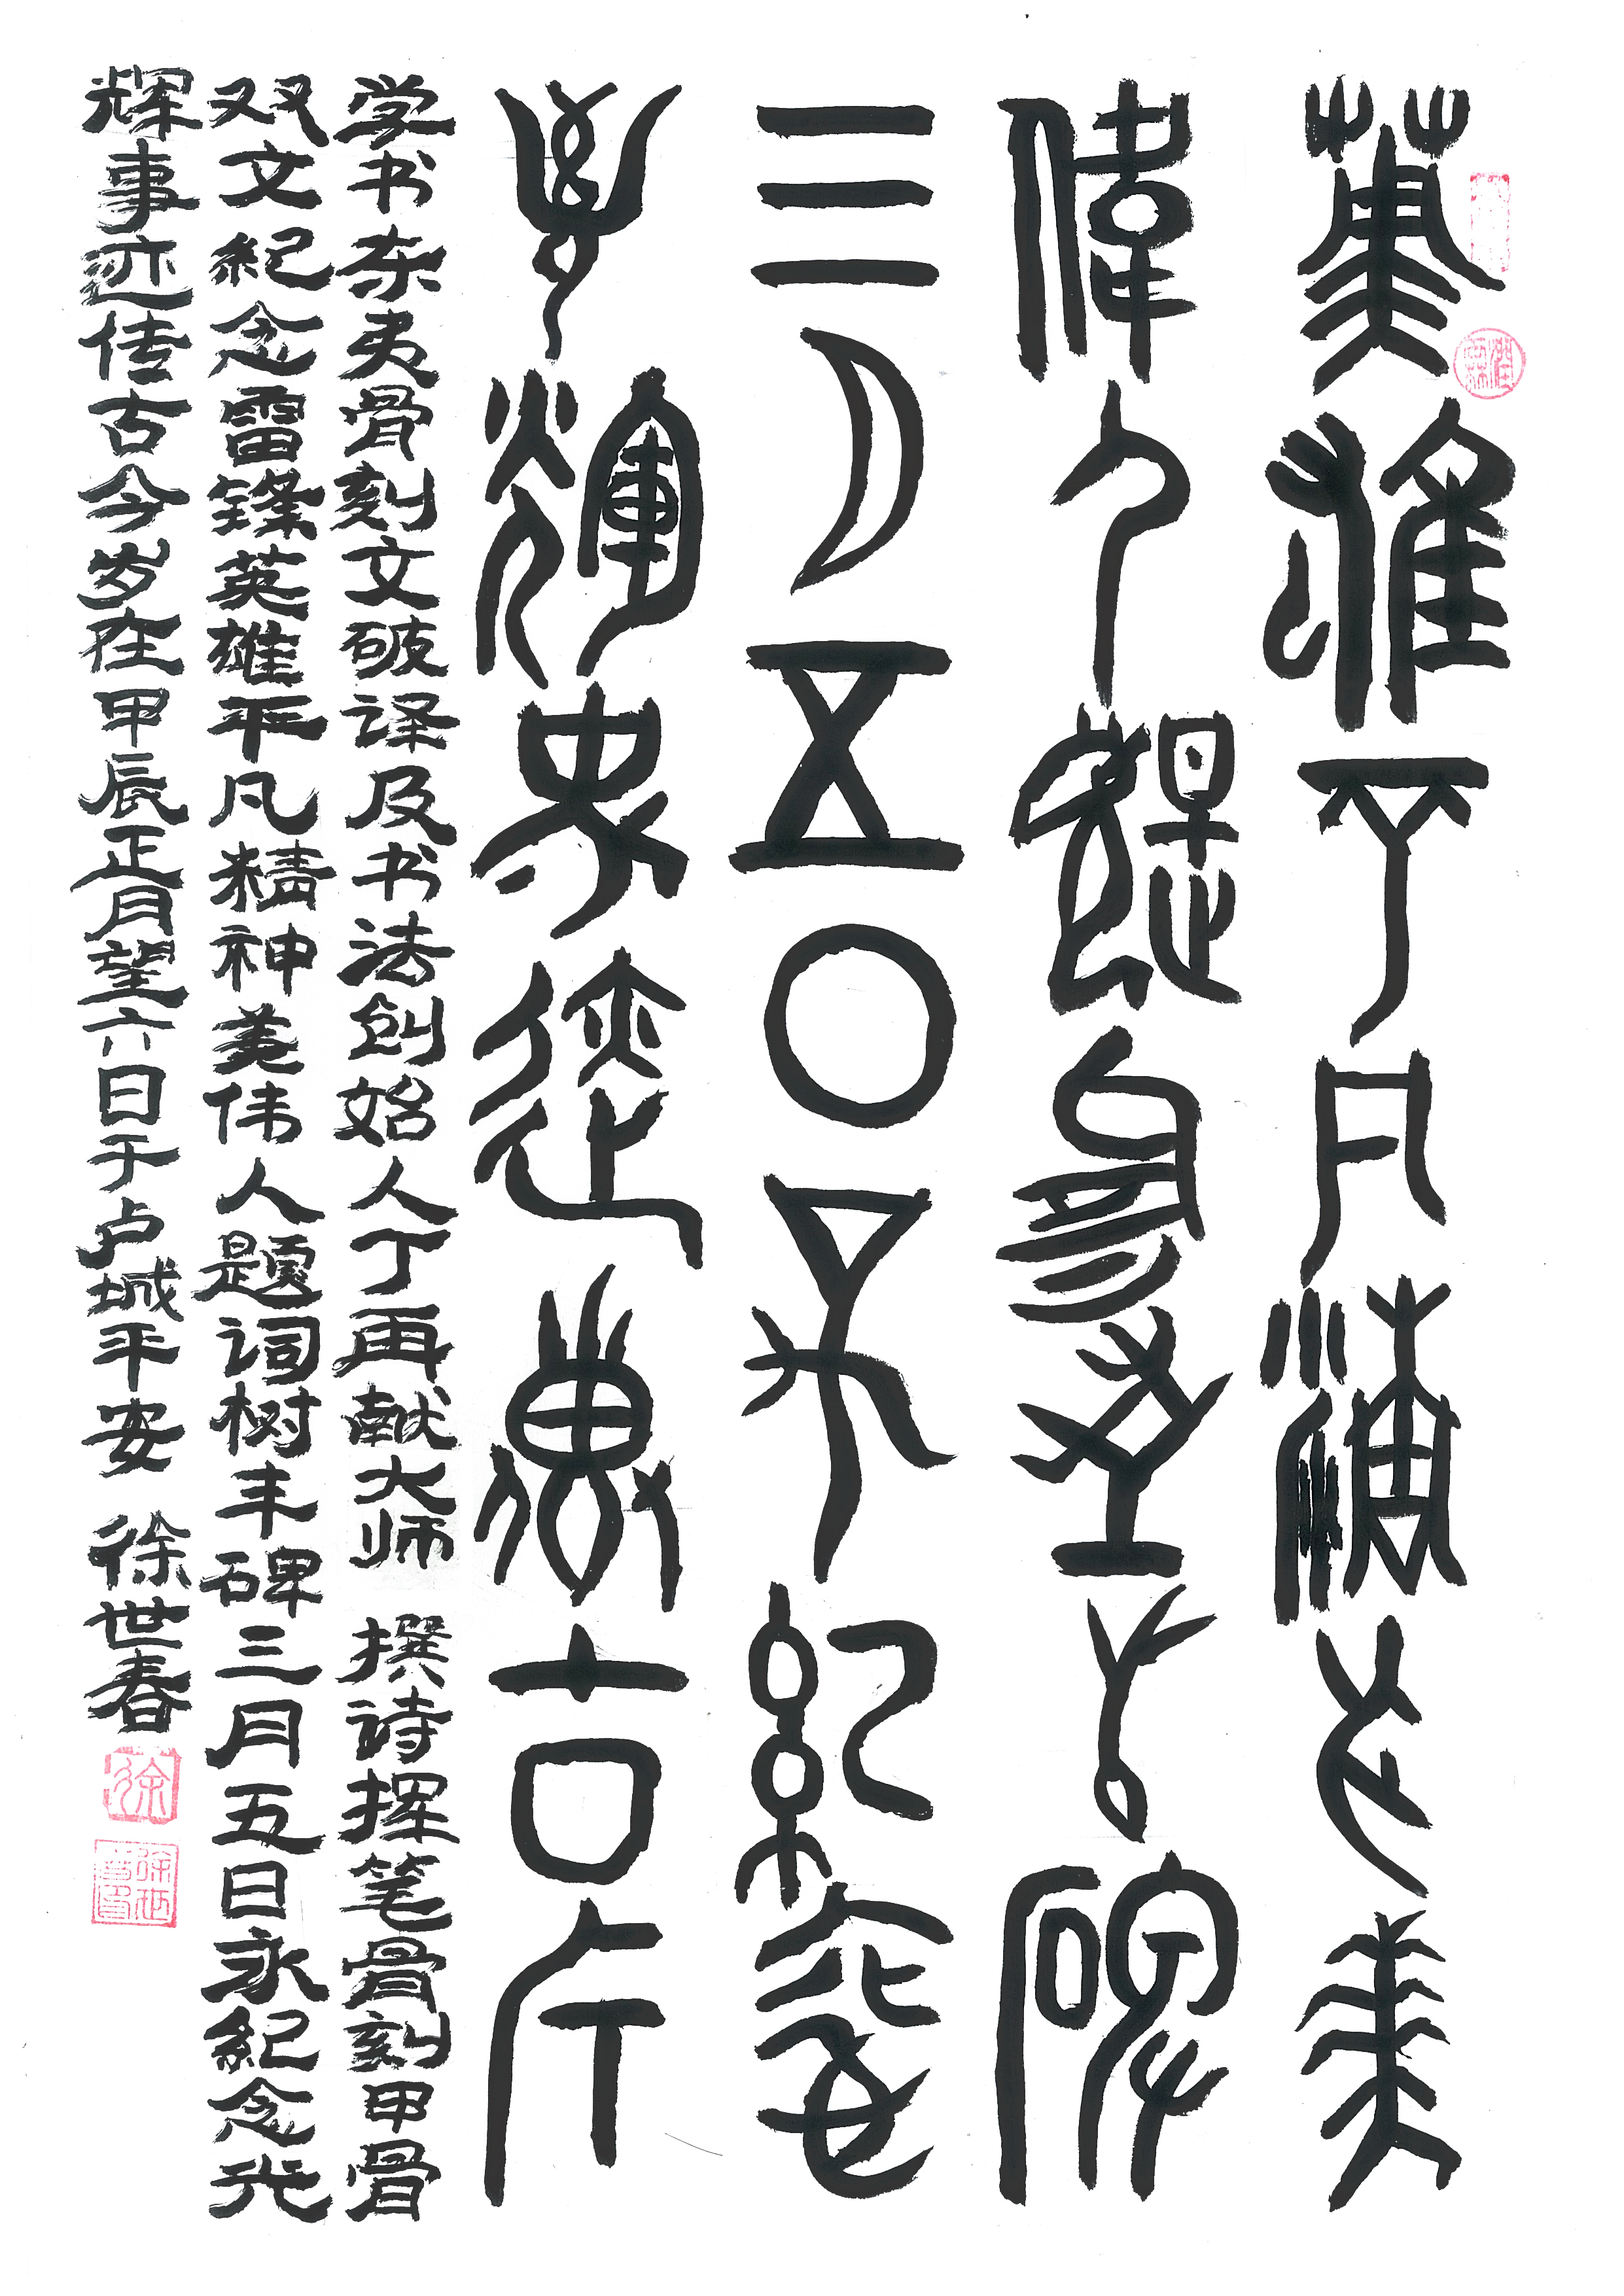 英雄平凡精神美
偉人題詞樹丰碑
三月五日永紀念
光輝事迹傳古今
学书东夷骨刻文破译及书法创始人丁再献大师 撰诗挥笔骨刻甲骨
双文紀念雷锋英雄平凡精神美伟人题词树丰碑三月五日永紀念光
辉事迹传古今岁在甲辰正月望六日于卢城平安 徐世春
徐
徐世春印